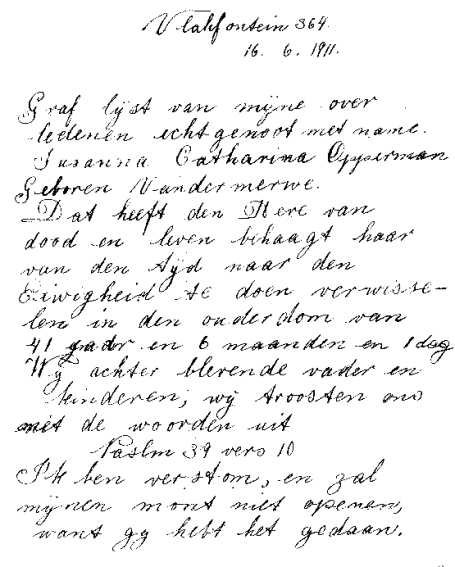 Vlakfontein 364.
16. 6. 1911.
Graf lijst van mijne over
ledenen echtgenoot met name.
Susanna Catharina Opperman
Geboren Vandermerwe.
Dat heeft den Here van
dood en leven behaagt haar
van den tijd naar den
Eiwigheid te doen verwisse-
len in den ouderdom van
41 jaar en 6 maanden en 1 dag
Wij achter blerende vader en
kinderen; wij troosten ons
met de woorden uit
Paslm 39 vers 10
Ik ben verstom, en zal
mijnen mont niet openen,
want gy hebt het gedaan.